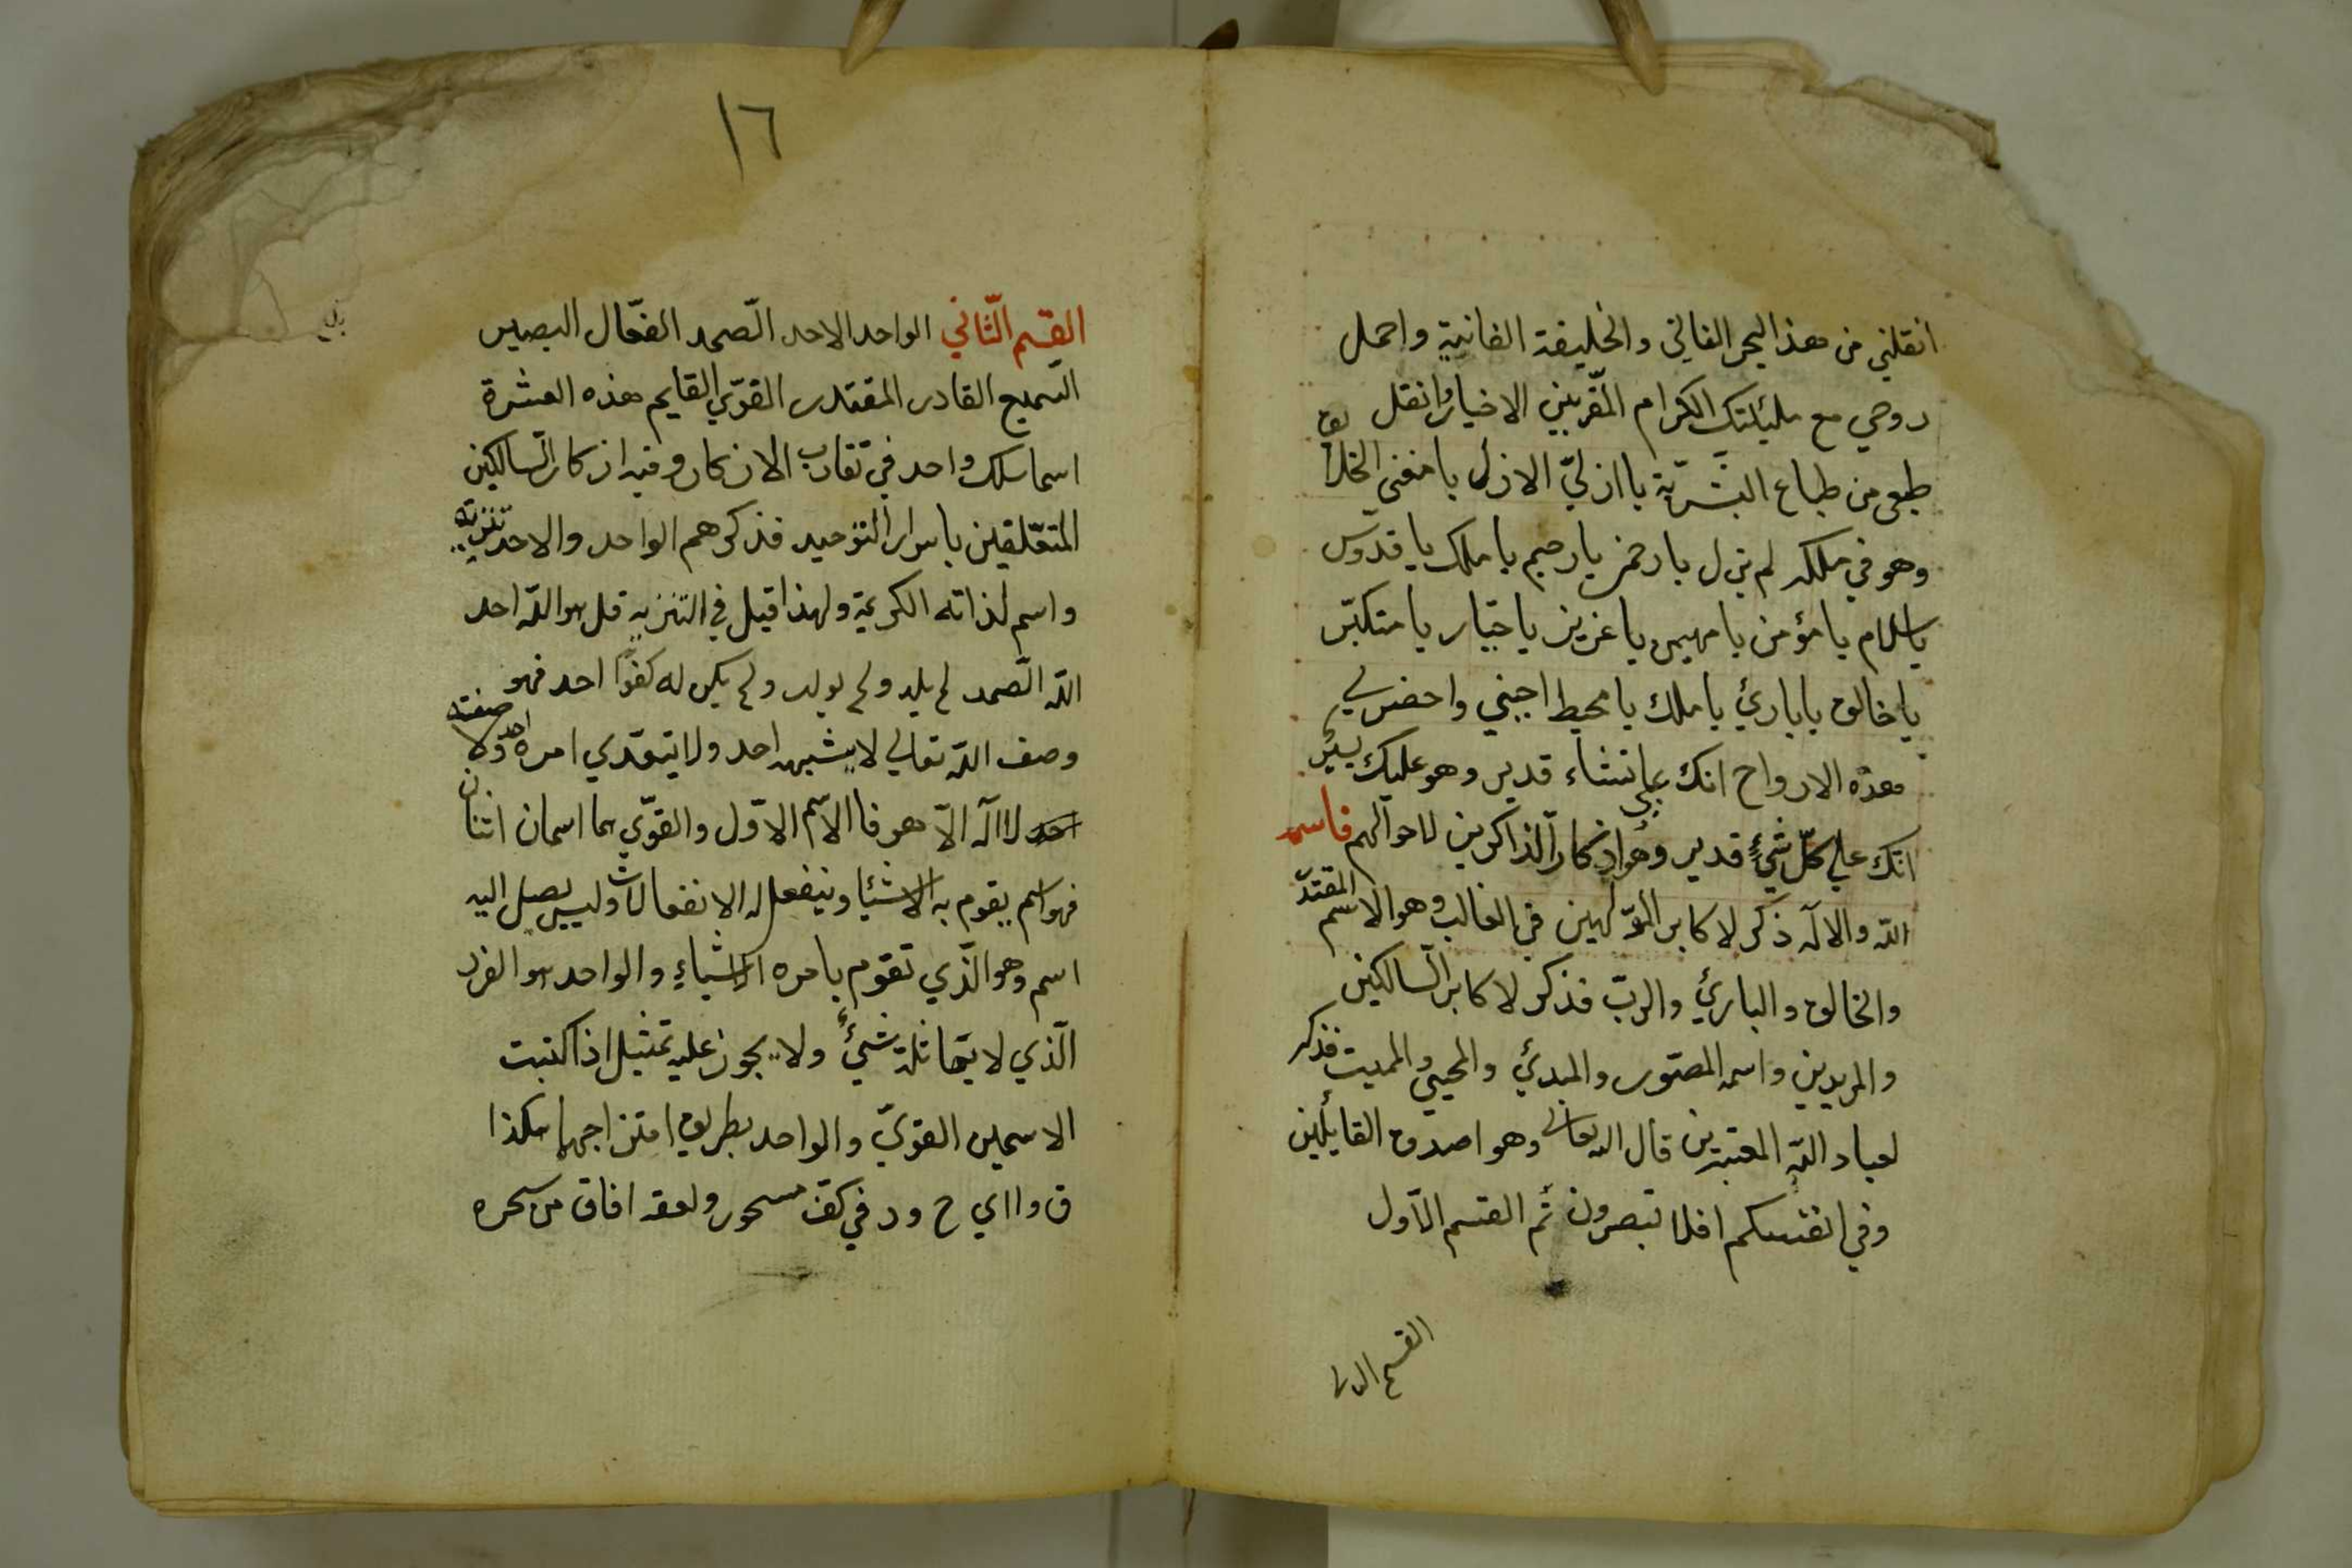 انقلني من هذا البحر الفاني والخليقة الفانية واحمل
روحي مع مليكتك الكرام المقّربين الاخيار وانقل
طبعي من طباع البشريّة يا ازليّ الازل يا مفني الخلايق
وهو في ملكه لم يزل يا رحمن يا رحيم يا ملك يا قدّوس
يا سلام يا مؤمن يا مهيمن يا عزيز يا جبّار يا متكبّر
يا خالق يا بارئ يا ملك يا محيط اجبني واحضر لي
هذه الارواح انك علي ما تشاء قدير وهو عليك يسير
انّك علي كلّ شيءٍ قدير وهو اذكار الذاكرين لاحوالهم فاسمه
اللّه والاله ذكر لاكابر المؤلّهين في الغالب وهو الاسم المقتدّ
والخالق والبارئ والربّ فذكر لاكابر السّالكين
والمريدين واسمه المصّور والمبدئ والمحيي والمميت فذكر
لعباد اللّه المعتبرين قال اللّه تعالى وهو اصدق القايلين
وفي انفسكم افلا تبصرون تم القسم الاول
القسم الثا
١٦
القسم الثّاني الواحد الاحد الصّمد الفعّال البصير
السّميع القادر المقتدر القوّي القايم هذه العشرة
اسما سلك واحد في تقارب الاذكار وفيه اذكار السّالكين
المتعّلقين باسرار التوحيد فذكرهم الواحد والاحد تنزيه
واسم لذاته الكريمة ولهذا قيل في التنزيه قل هو اللّه احد
اللّه الصّمد لم يلد ولم يولد ولم يكن له كفوًا احد فهو
وصف اللّه تعالي لا يشبهه احد ولا يتعّدي امره احد ولا صفته
احد لا اله الاّ هو فا الاسم الاوّل والقوّي هما اسمان اثنان
فهو اسم يقوم به الاشيا وينفعل له الانفعالات وليس يصل اليه
اسم وهو الّذي تقوم بامره الاشياءِ والواحد هو الفرد
الّذي لا يماثله شيءٌ ولا يجوز عليه تمثيل اذا كتبت
الاسمين القويّ والواحد بطريق امتزاجهما هكذا
ق و ا ا ي ح و د في كفّ مسحور ولعقه افاق من سحره